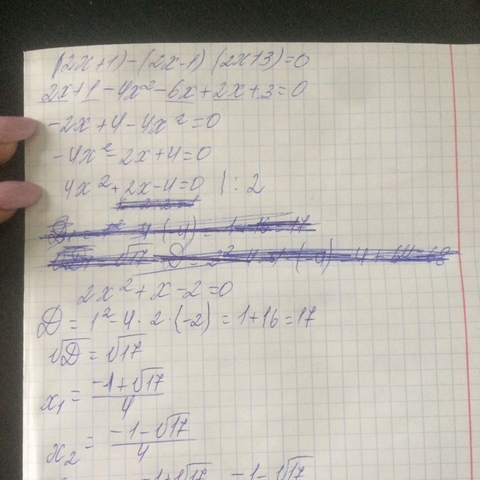 (2x+1)-(2x-1)(2x+3)=0
2x+1-4x²-6x+2x+3=0
-2x+4-4x²=0
-4x²-2x+4=0
4x²+2x-4=0 |:2
2x²+x-2=0
D=1²-4·2·(-2)=1+16=17
√D=√17
x₁=(-1+√17)/4
x₂=(-1-√17)/4
-1+√17 -1-√17